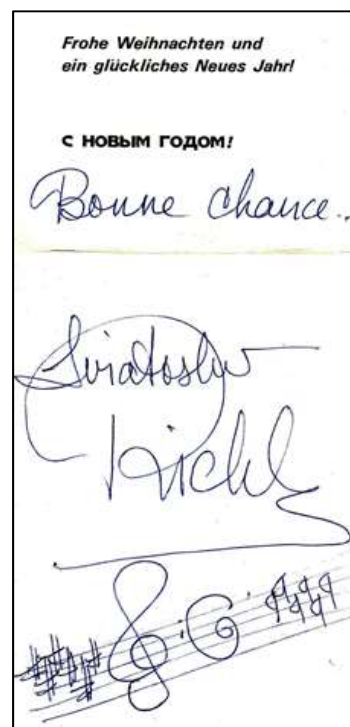 Frohe Weihnachten und
ein glückliches Neues Jahr!
С НОВЫМ ГОДОМ!
Bonne chance..
Sviatoslav